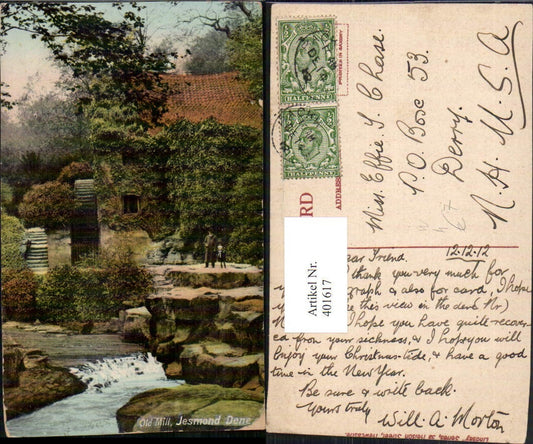 Old Mill, Jesmond Dene
RD
ADDRESS
Miss. Effie L. Chase.
P.O. Box 53.
Derry.
N.H. U.S.A
12.12.12
ear Friend.
thank you very much for
graph & also for card. I hope
this view in the dene. Nr)
I hope you have quite recover
ed from your sickness, & I hope you will
Enjoy your Christmas-tide, & have a good
time in the New Year.
Be sure & write back.
Yours truly
Will. A. Morton
Artikel Nr.
401617